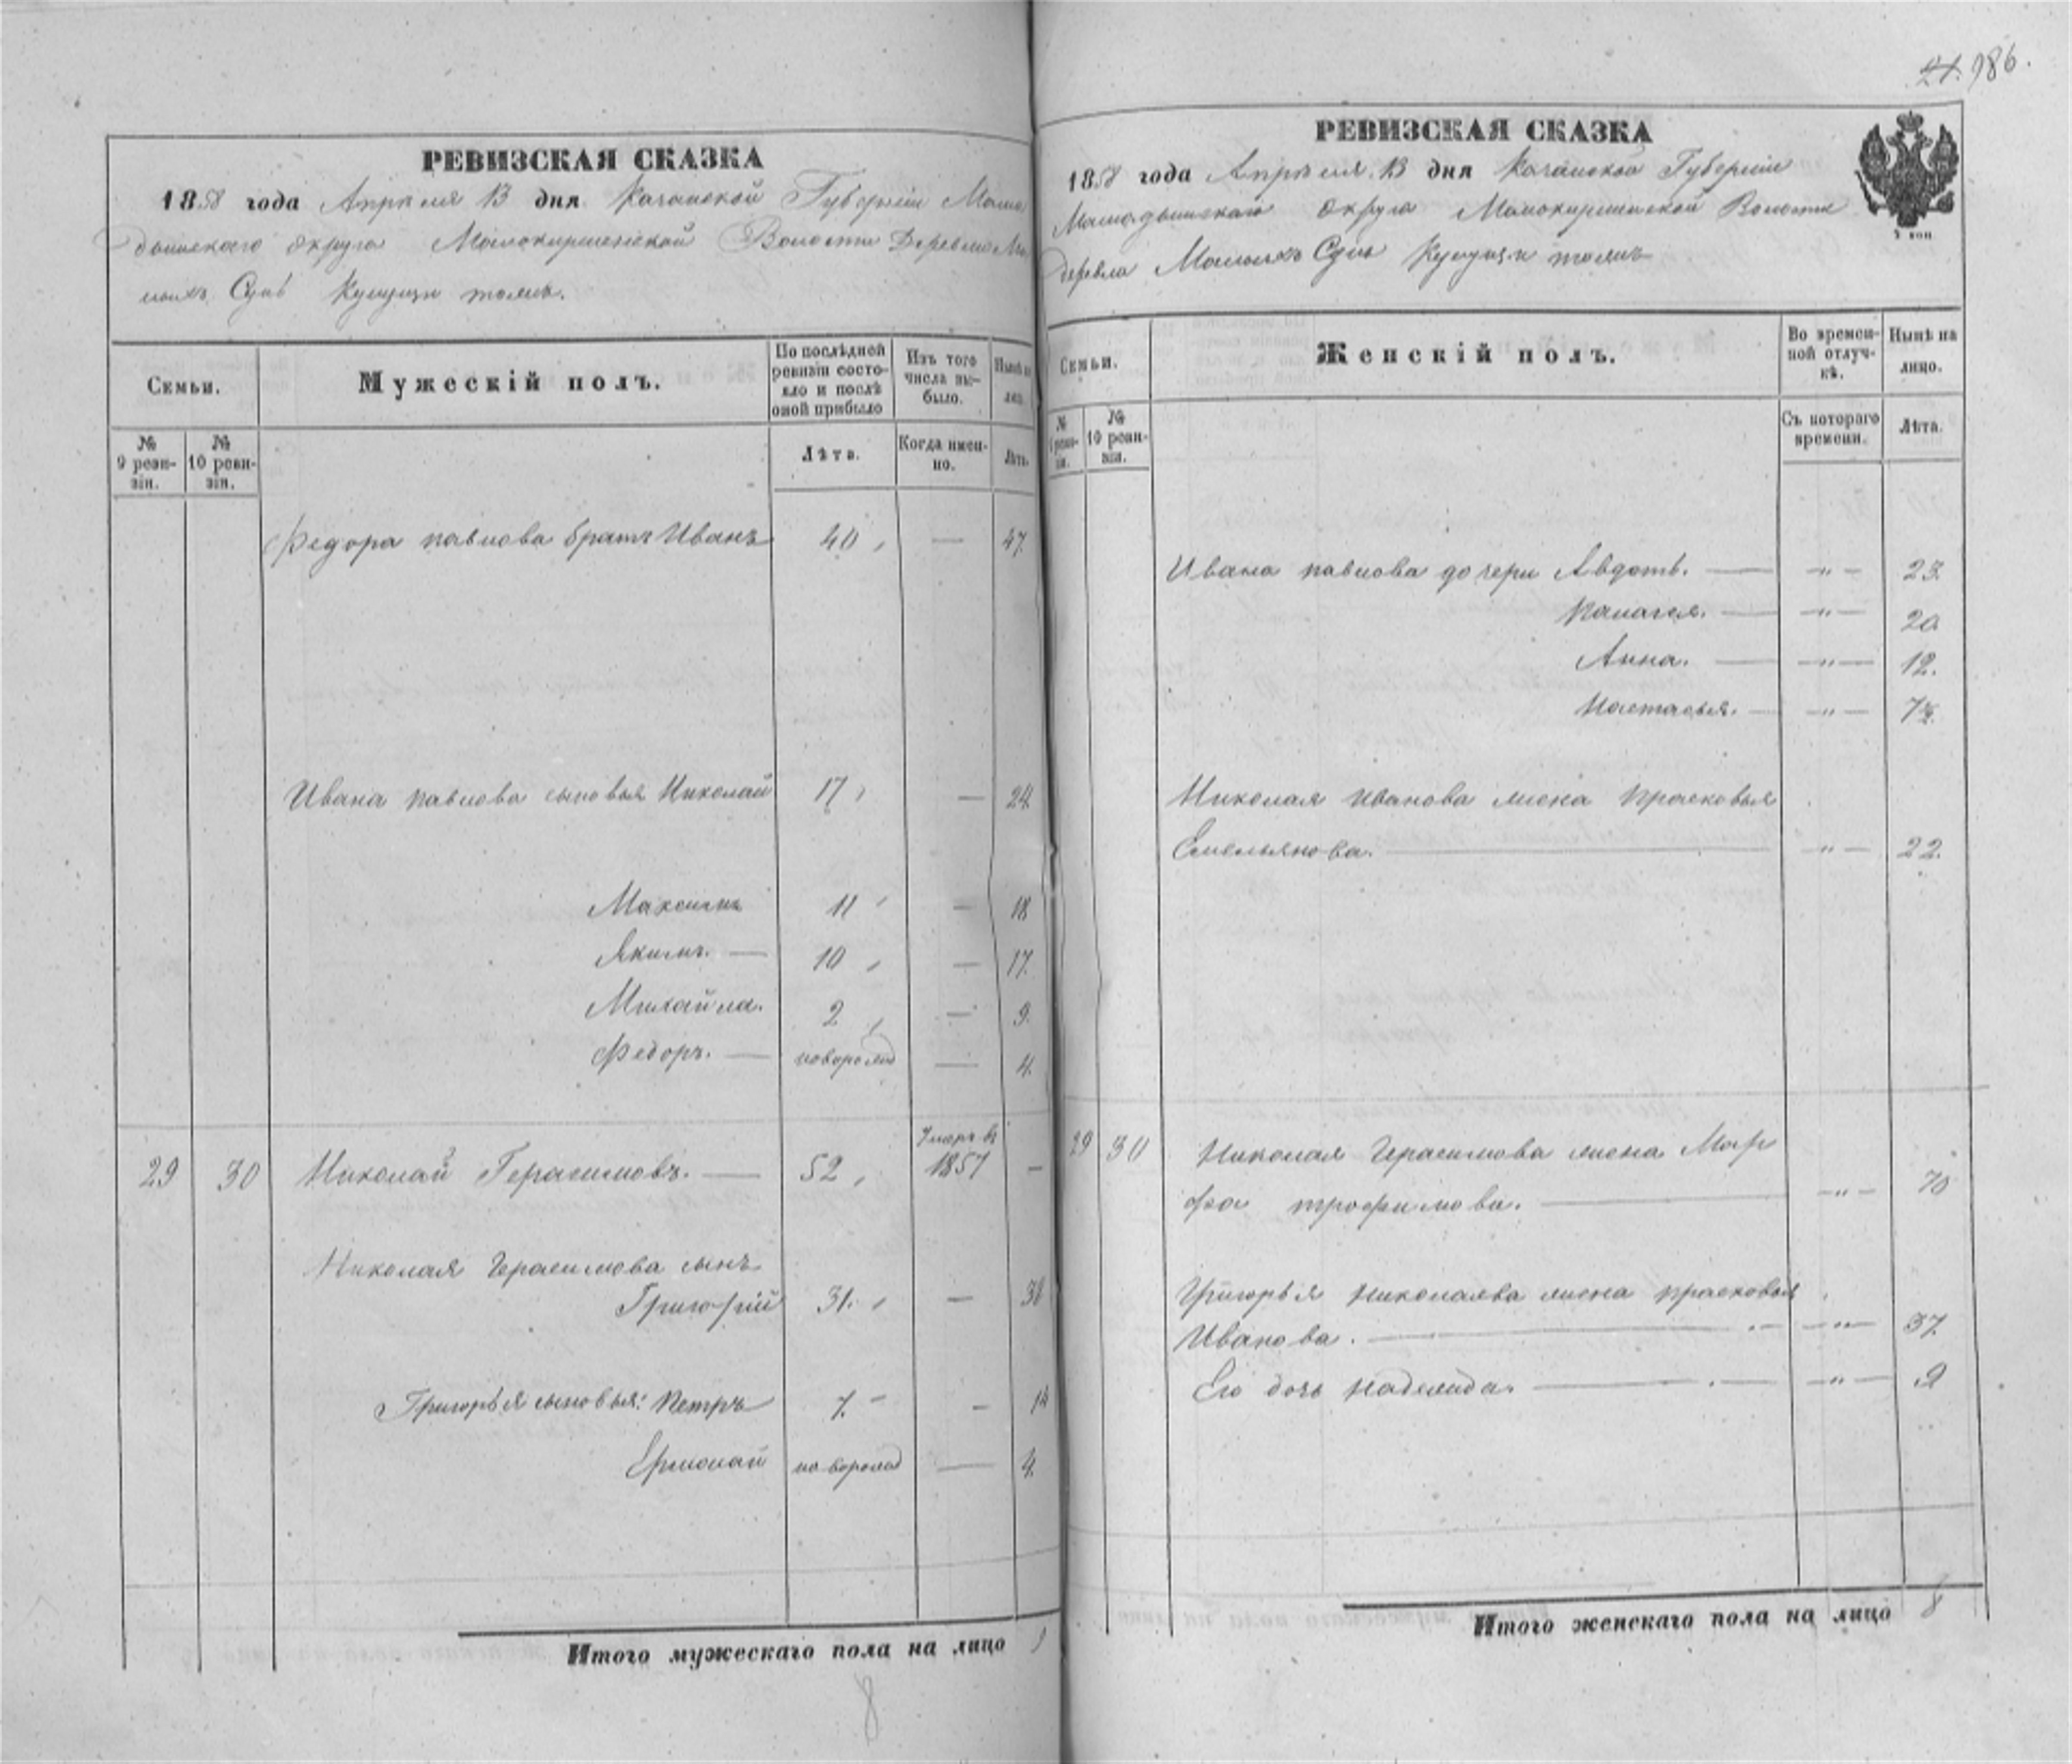 186.
РЕВИЗСКАЯ СКАЗКА
1858 года Апреля 13 дня Казанской Губернии Мама
дышскаго округа Волости Деревни Ма
лыхъ Сунь
Семьи.
Мужескій полъ.
По послѣдней ревизіи состо-
яло и послѣ
оной прибыло
Изъ того
числа вы-
было.
Нынѣ на
лицо.
№
9 реви-
зіи.
№
10 реви-
зіи.
Лѣта.
Когда имен-
но.
Лѣта.
Федора павлова братъ Иванъ 40 — 47
Ивана павлова сыновья Николай 17 — 24
Максимъ 11 — 18
Якимъ. — 10 — 17.
Михайла. 2 — 9.
Федоръ. — новорожд — 4.
29 30 Николай Герасимовъ. — 52 Умеръ въ 1857 —
Николая Герасимова сынъ
Григорій 31. — 38
Григорья сыновья: Петръ 7. — 14
Ермолай новорожд — 4.
Итого мужескаго пола на лицо
8
РЕВИЗСКАЯ СКАЗКА
1858 года Апреля 13 дня Казанской Губерніи
Мамадышскаго округа Волости
деревни Малыхъ Сунь
2 коп
Семьи.
Женскій полъ.
Во времен-
ной отлуч-
кѣ.
Нынѣ на
лицо.
№
9 реви-
зіи.
№
10 реви-
зіи.
Съ котораго
времени.
Лѣта.
Ивана павлова дочери Авдотья. — „ — 23.
Палагея. — „ — 20
Анна. — „ — 12.
Настасья. — „ —
Николая Иванова жена Прасковья
Емельянова. — „ — 22.
29 30 Николая Герасимова жена Мар
фа трофимова. — „ — 70
Григорья Николаева жена прасковья
Иванова. — „ — 37.
Его дочь Надежда. — „ — 9
Итого женскаго пола на лицо 8